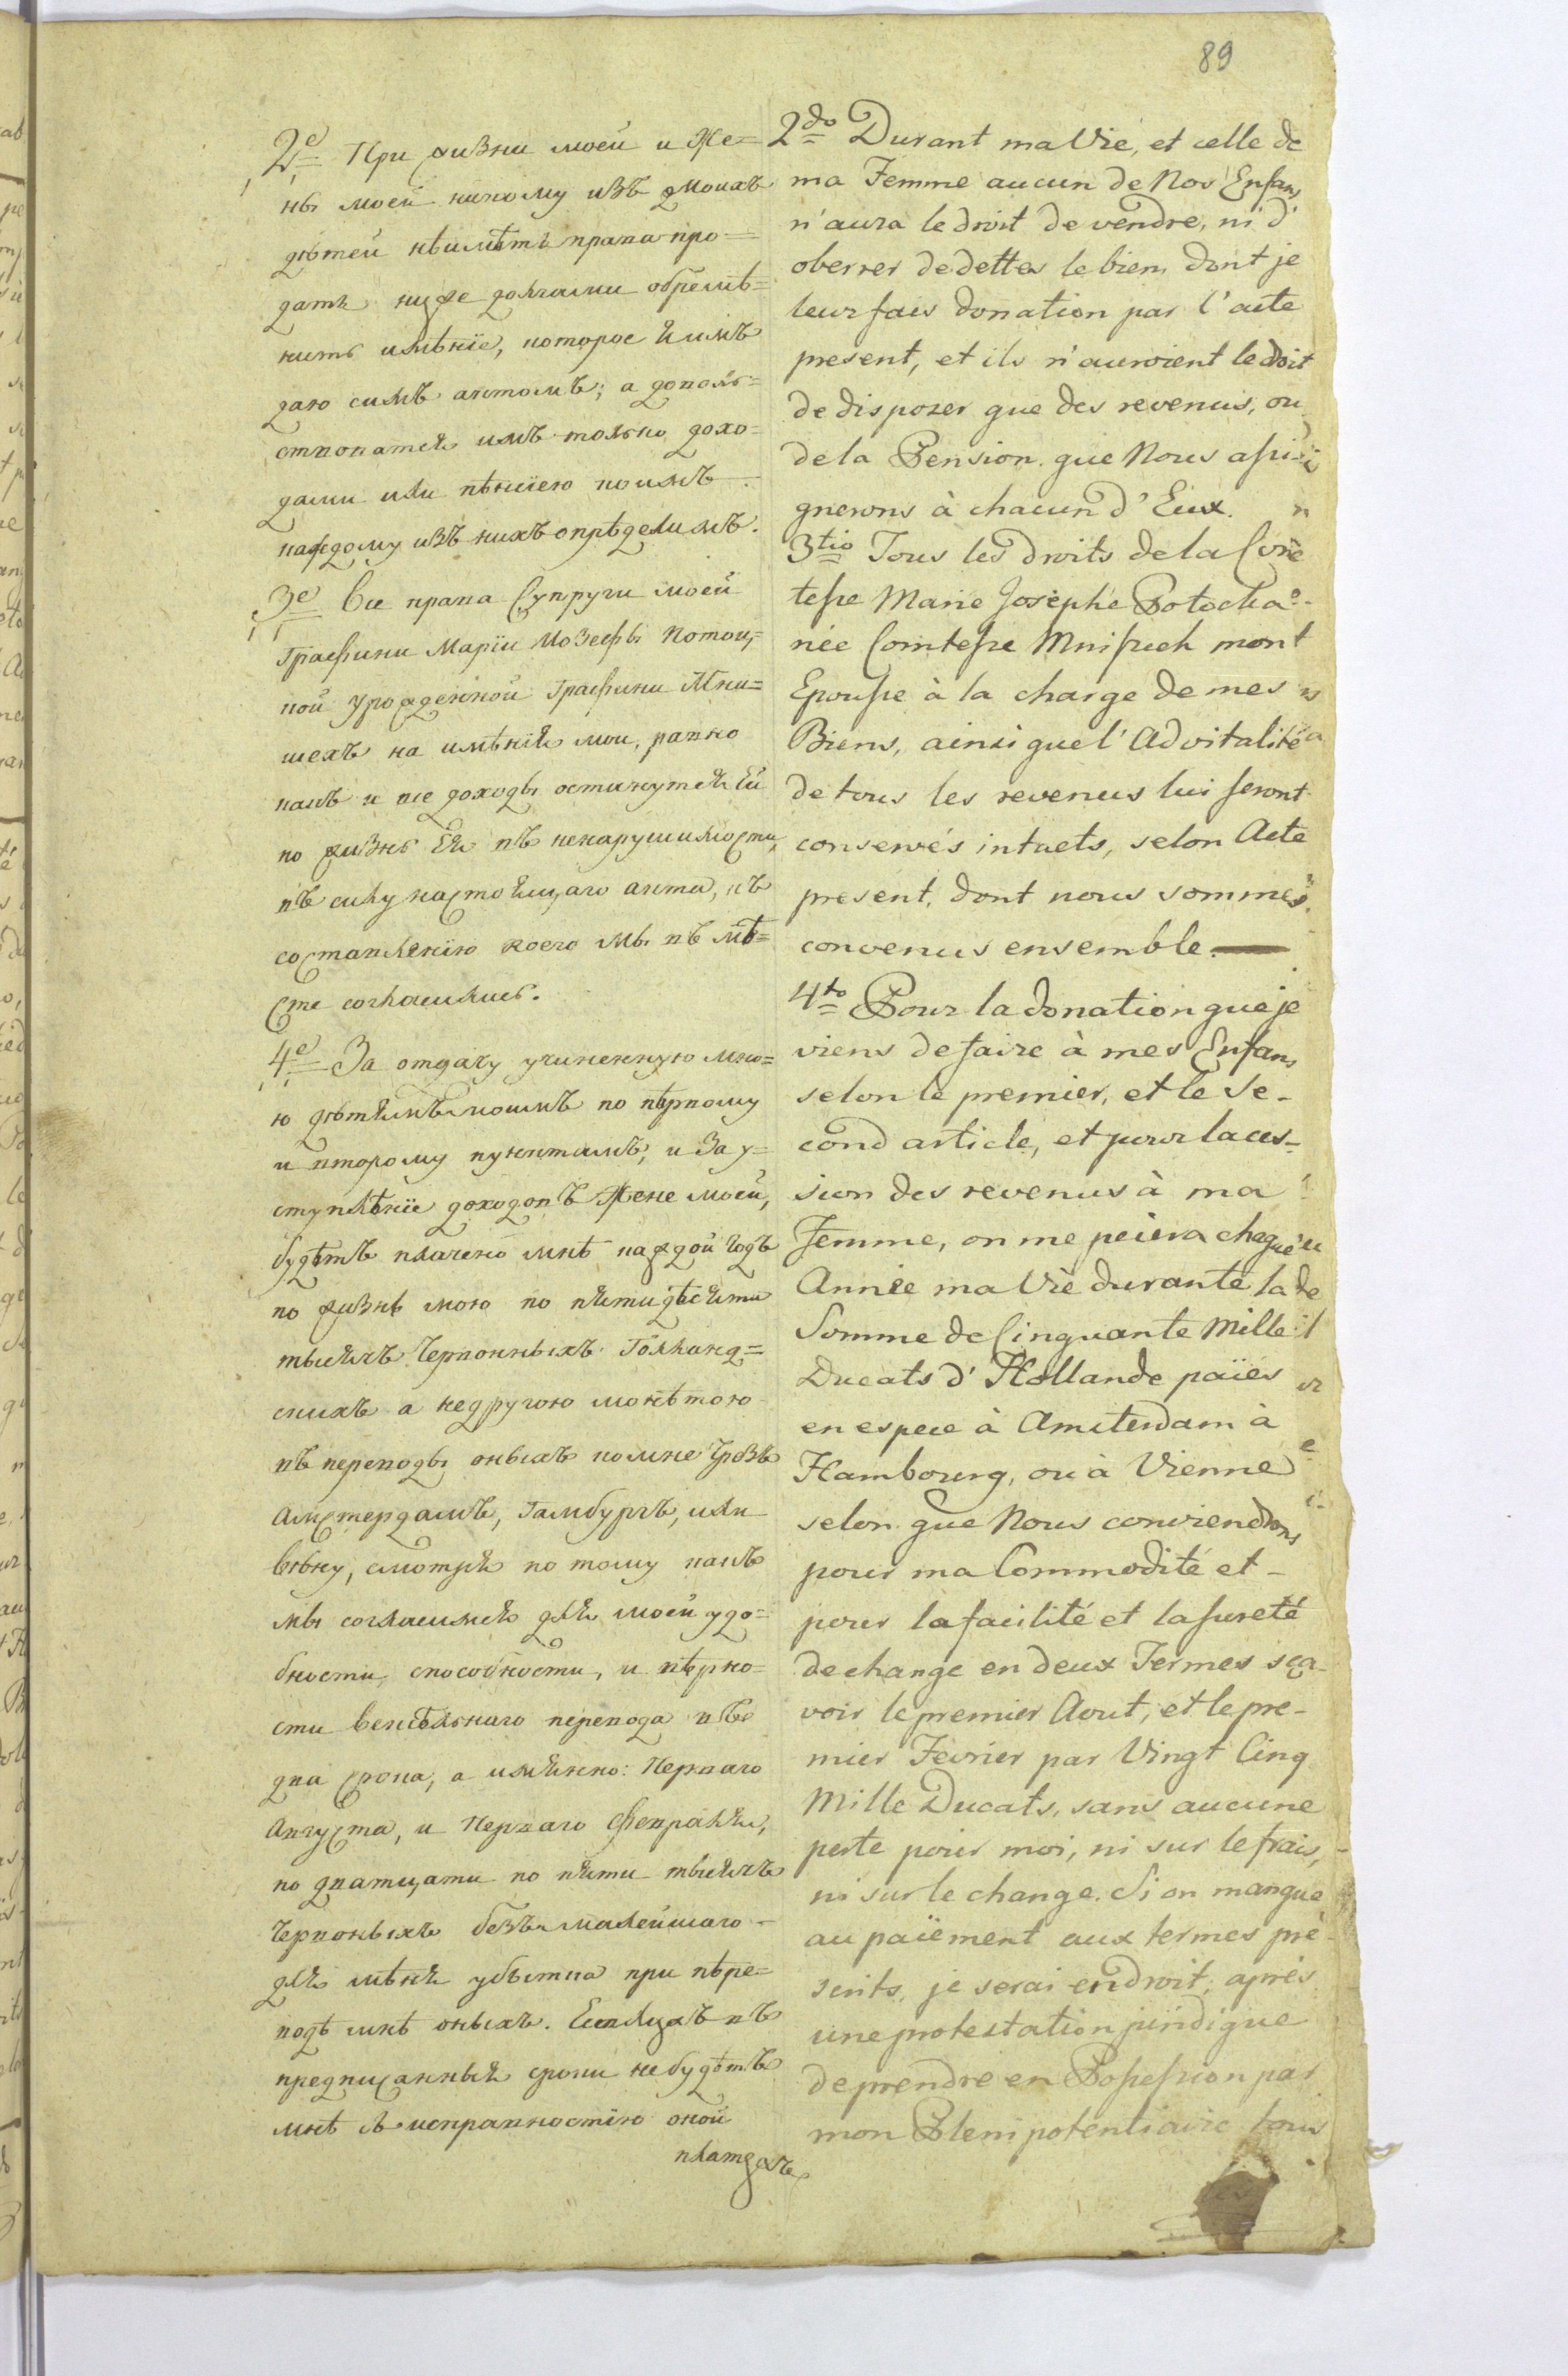 89
2е При жизни моей и Же=
ны моей никому изъ моихъ
дѣтей нѣимѣтъ права про=
дать ниже долгами обремѣ=
нить имѣнїе, которое я имъ
даю симъ актомъ; а доволь=
ствоватся имъ только дохо=
дами или пѣнсїею коимъ
каждому изъ нихъ опрѣделимъ.
3е Все права Супруги моей
Графини Марїи Иозефы Потоц=
кой урожденной Графини Мни=
шехъ на имѣнїя мои, равно
какъ и все доходы останутся Ей
по жизнь Ея въ ненарушимости,
въ силу настоящаго акта, къ
составленїю коего мы въ мѣ=
сте согласились.
4е За отдачу учиненную мно=
ю дѣтямъ моимъ по пѣрвому
и второму пунктамъ, и За у=
ступлѣнїе доходовъ Жене моей,
будѣтъ плачено мнѣ каждой годъ
по жизнь мою по пятидѣсяти
тысячъ Червонныхъ Голланд=
скихъ а недругою монѣтою
въ переводы оныхъ комне Чрезъ
Амстердамъ, Гамбургъ, или
Вѣну, смотря по тому какъ
мы согласимся для моей удо=
бности, способности, и вѣрно=
сти Вексѣльнаго перевода въ
два срока, а имянно: Перваго
Августа, и Перваго Февраля,
по дватцати по пяти тысячъ
Червоныхъ безъ малейшаго
для мѣня убытка при пѣре=
водѣ мнѣ оныхъ. Еслижъ въ
предписанныя сроки не будѣтъ
мнѣ съ исправностїю оной
платежъ
2do Durant ma Vie, et celle de
ma Femme aucun de Nos Enfans
n'aura le droit de vendre, ni d'
oberrer de dettes le bien dont je
leur fais donation par l'acte
present, et ils n'auroient le droit
de disposer que des revenus, ou
de la Pension que Nous assi-
gnerons à chacun d'Eux.
3tio Tous les droits de la Com
tesse Marie Josèphe Potocka
née Comtesse Mnisrech mon
Epouse à la charge de mes
Biens, ainsi que l'Advitalité
de tous les revenus lui seront
conservés intacts, selon Acte
present, dont nous sommes
convenus ensemble.
4to Pour la donation que je
viens de faire à mes Enfans
selon le premier, et le Se-
cond article, et pour la ces-
sion des revenus à ma
Femme, on me païera chaque
Année ma Vie durante la
Somme de Cinquante Mille
Ducats d'Hollande païés
en espece à Amsterdam à
Hambourg, ou à Vienne
selon que Nous conviendrons
pour ma Commodité et-
pour la facilité et la sureté
de change en deux Termes sça-
voir le premier Aout, et le pre-
mier Fevrier par Vingt Cinq
Mille Ducats, sans aucune
perte pour moi, ni sur le frais,
ni sur le change. Si on manque
au païement aux termes pré-
scrits, je serai en droit, après
une protestation juridique
de prendre en Possession par
mon Plenipotentiaire tous